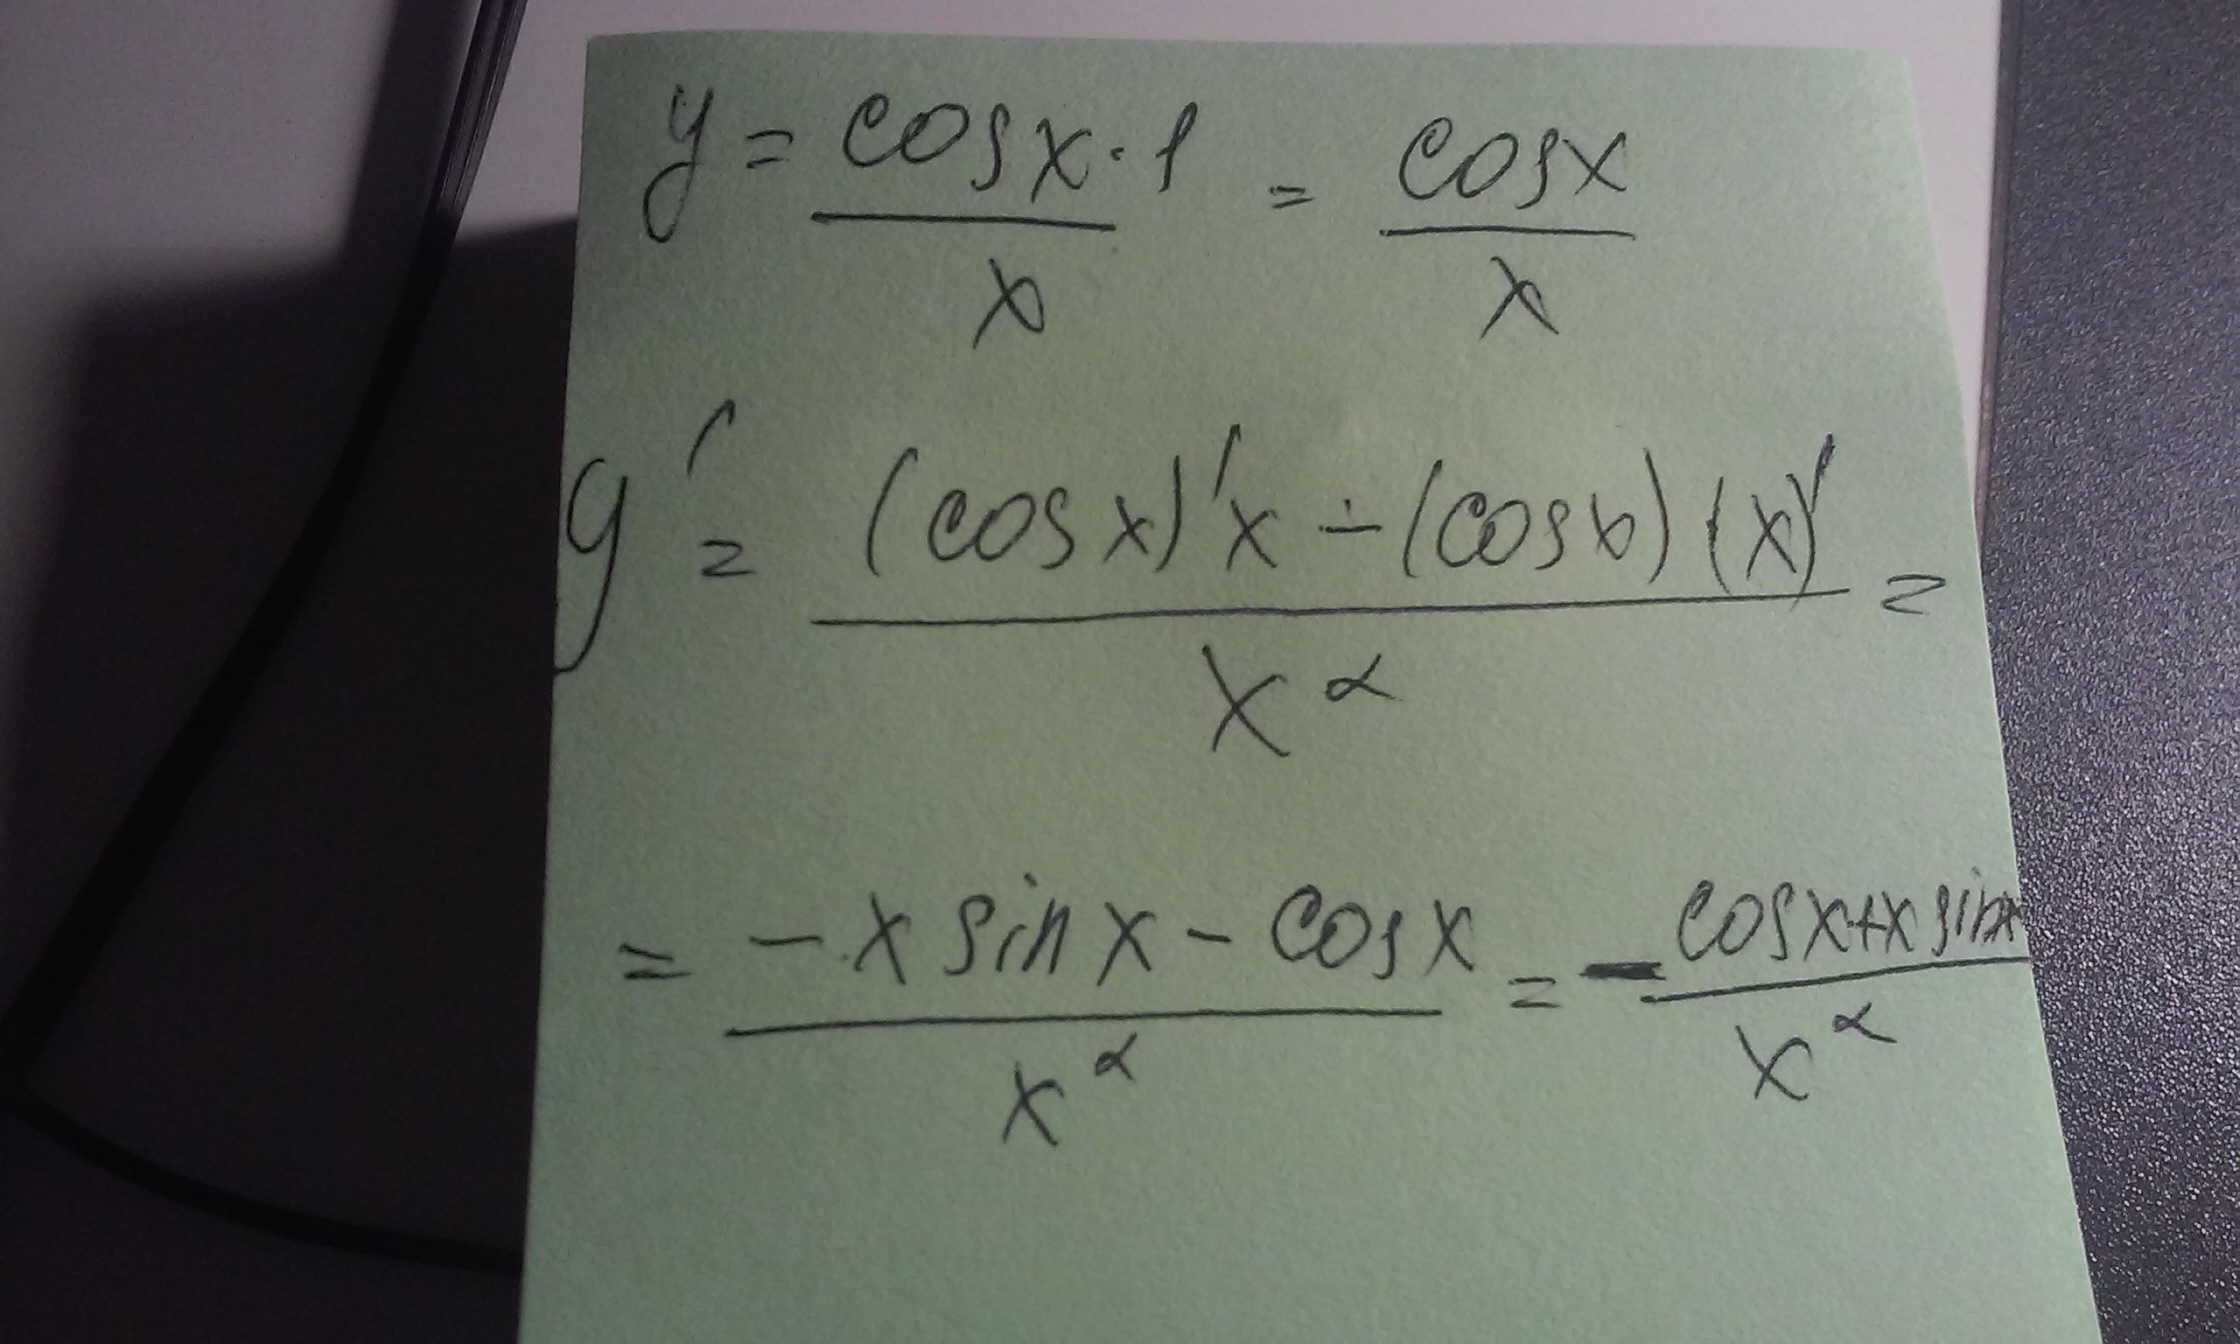 y = cosx·1 / x = cosx / x
y' = (cosx)'x - (cosx)(x)' / x² =
= -x sinx - cosx / x² = - cosx+x sinx / x²